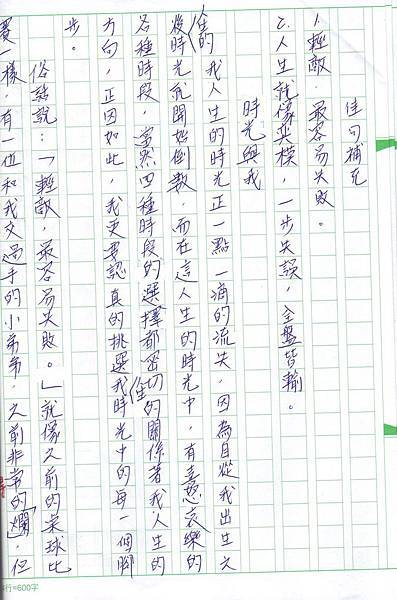 佳句補充
1.輕敵,最容易失敗。
2.人生就像奕棋,一步失誤,全盤皆輸。
時光與我
我人生的時光正一點一滴的流失,因為自從我出生之
後時光(生的)便開始倒數,而在這人生的時光中,有喜怒哀樂的
各種時段,當然四種時段的選擇都密切的關係著我人生的
方向,正因如此,我更要認真的挑選我(生)時光中的每一個腳
步。
俗話說:「輕敵,最容易失敗。」就像之前的桌球比
賽一樣,有一位和我交過手的小弟弟,之前非常的「爛」,但
行=600字